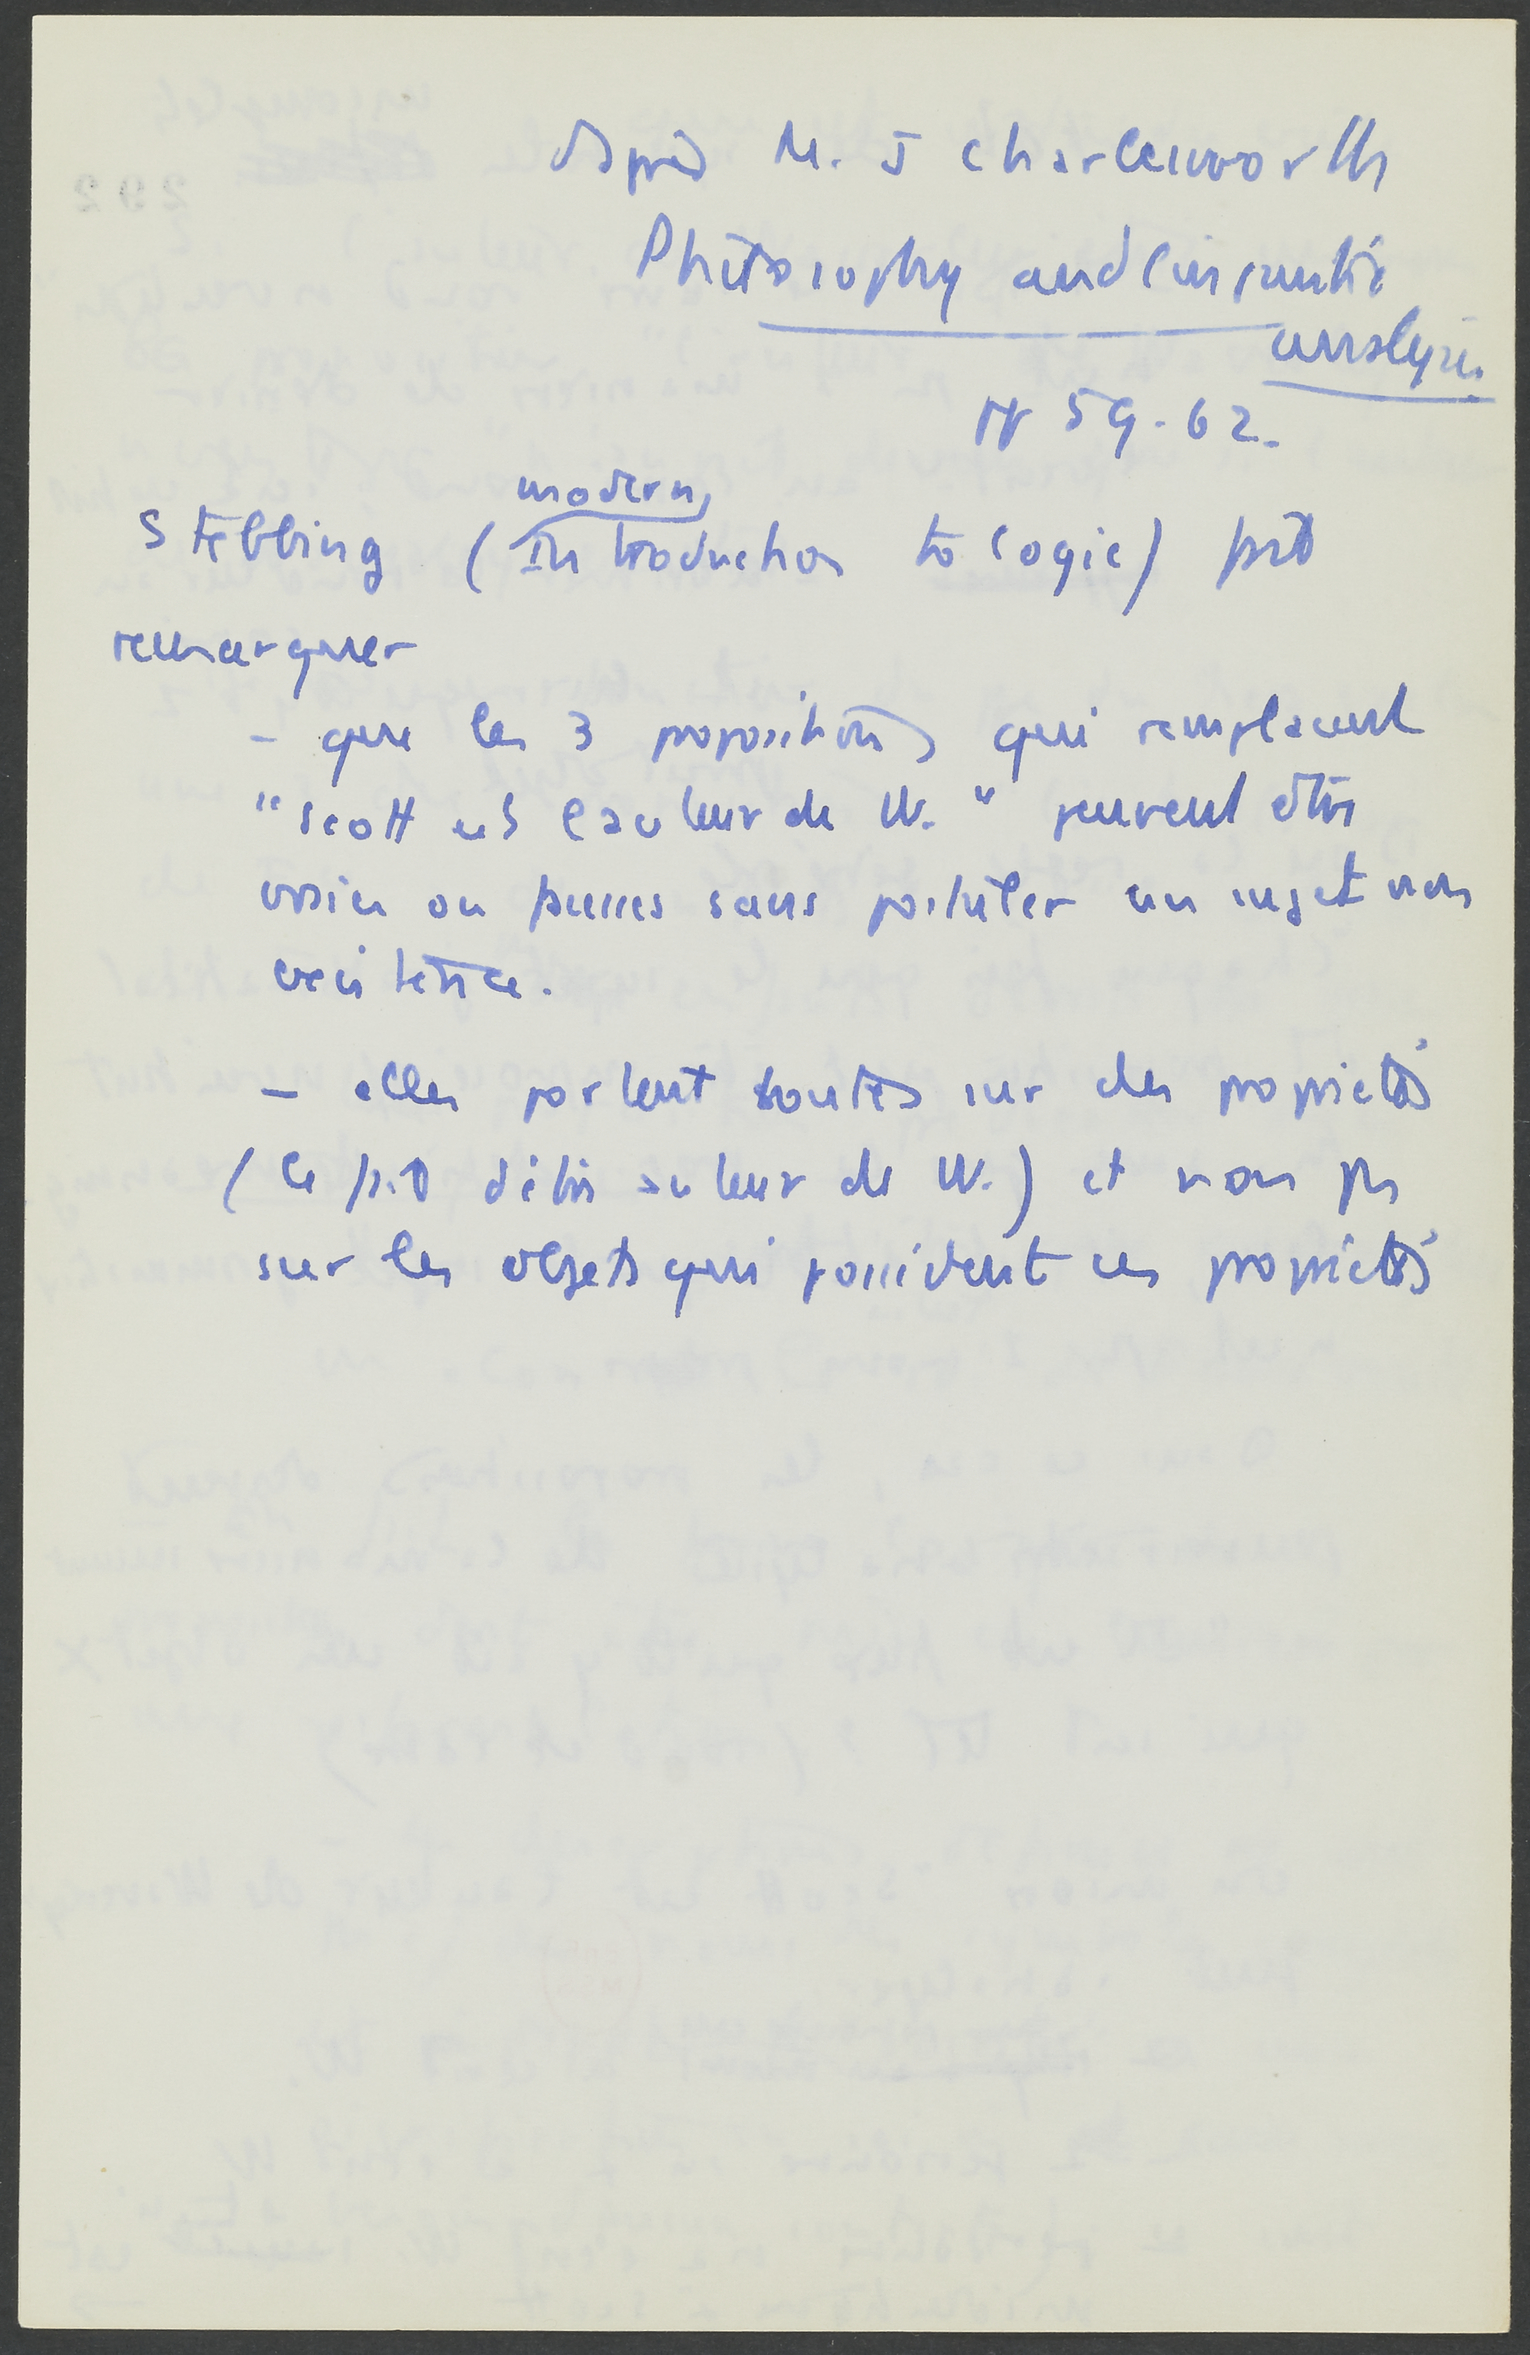 d'après M. J Charlesworth
Philosophy and linguistic
analysis.
pp 59-62.
modern
Stebbing (Introduction to logic) fait
remarquer
- que les 3 propositions qui remplacent
"Scott est l'auteur de W." peuvent être
vraies ou fausses sans postuler un sujet non
existence.
- elles portent toutes sur des propriétés
(le fait d'être auteur de W.) et non pas
sur les objets qui possèdent ces propriétés